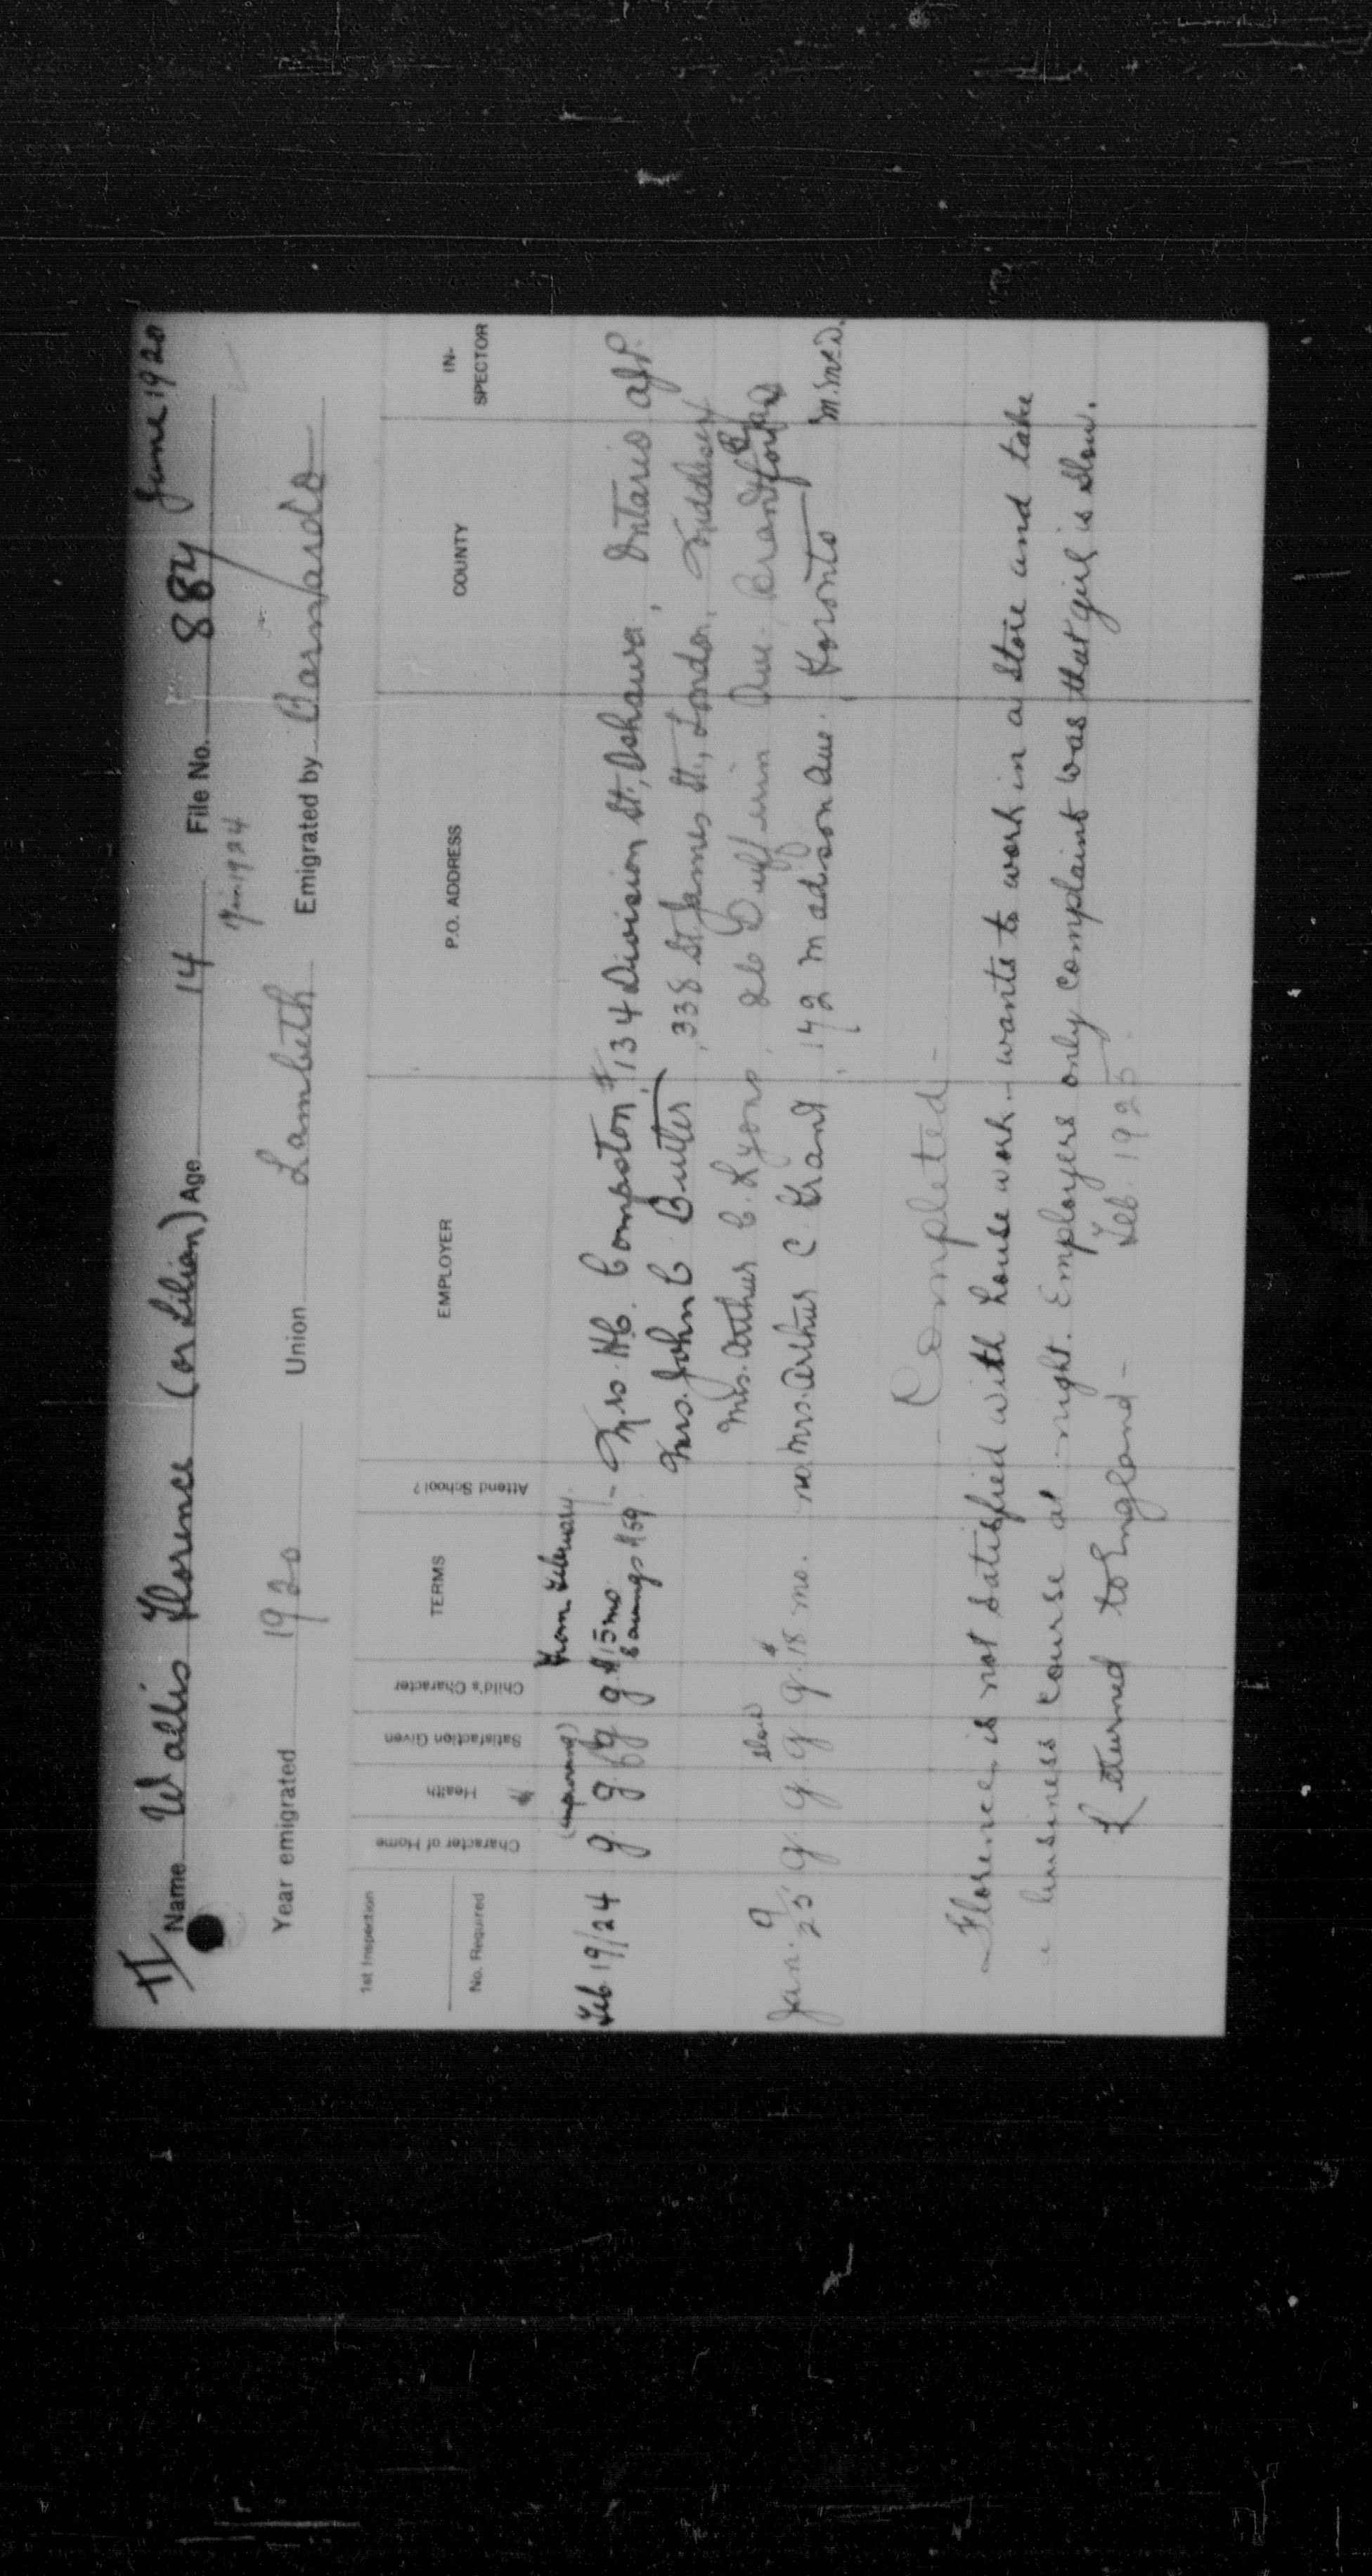 II
Name Wallis Florence (or Lilian) Age 14 File No. 884 June 1920
Year emigrated 1920 Union Lambeth Emigrated by Barnardo
1924
1st Inspection
No. Required
Character of Home
Health
Satisfaction Given
Child's Character
TERMS
Attend School?
EMPLOYER
P.O. ADDRESS
COUNTY
IN-
SPECTOR
(improving) From February
Feb 19/24 g. g. fg g. $15 mo. - Mrs. H.C. Compston #134 Division St., Oshawa, Ontario
Savings $59. Mrs. John C. Butler, 338 St. James St., London, Middlesex
slow Mrs. Arthur C. Lyons, 26 Dufferin Ave. Brantford
Jan. 9/25 g. g. g. g. $18 mo. no Mrs. Arthur C. Grant, 142 Madison Ave., Toronto M. McD.
- Completed -
Florence is not satisfied with house work - wants to work in a store and take
a business course at night. Employers only complaint was that girl is slow.
Returned to England - Feb. 1925.